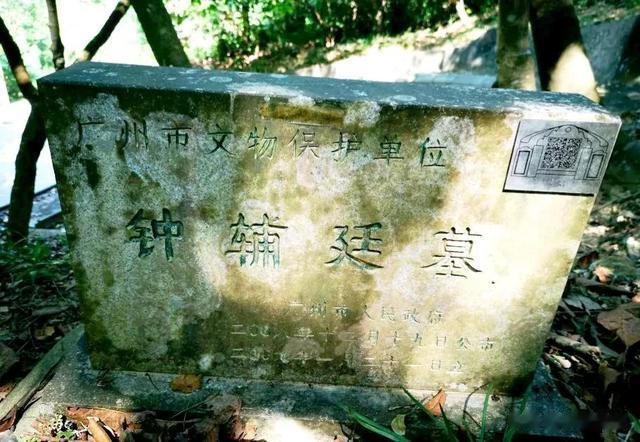 广州市文物保护单位
钟辅廷墓
广州市人民政府
二〇〇八年十二月十九日公布
二〇〇九年一月二十一日立